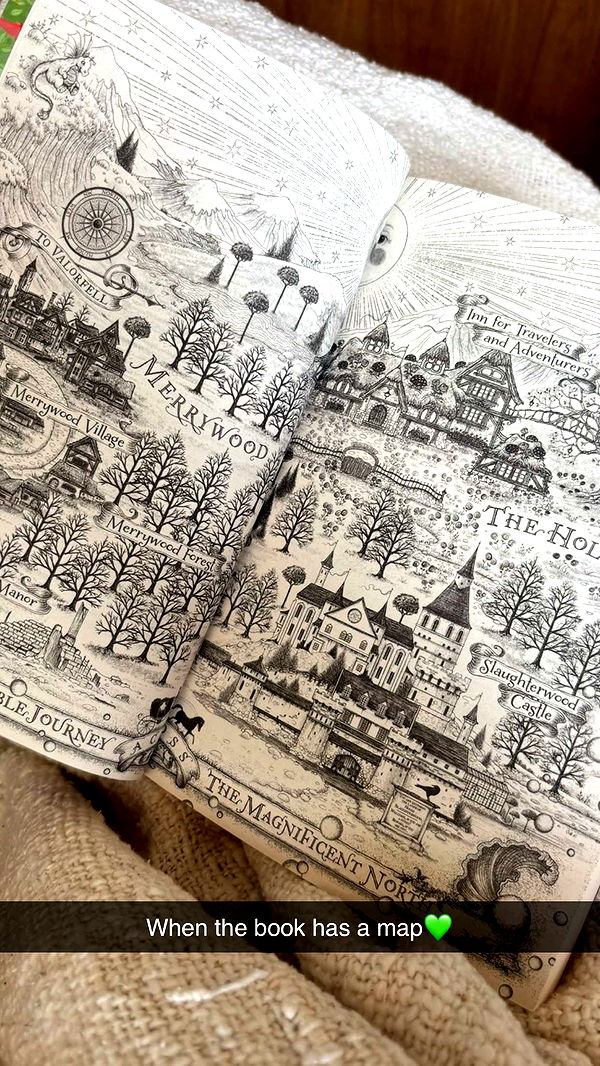 TO VALORFELL
MERRYWOOD
Merrywood Village
Merrywood Forest
Manor
JOURNEY
Inn for Travelers
and Adventurers
THE
Slaughterwood
Castle
THE MAGNIFICENT
When the book has a map💚